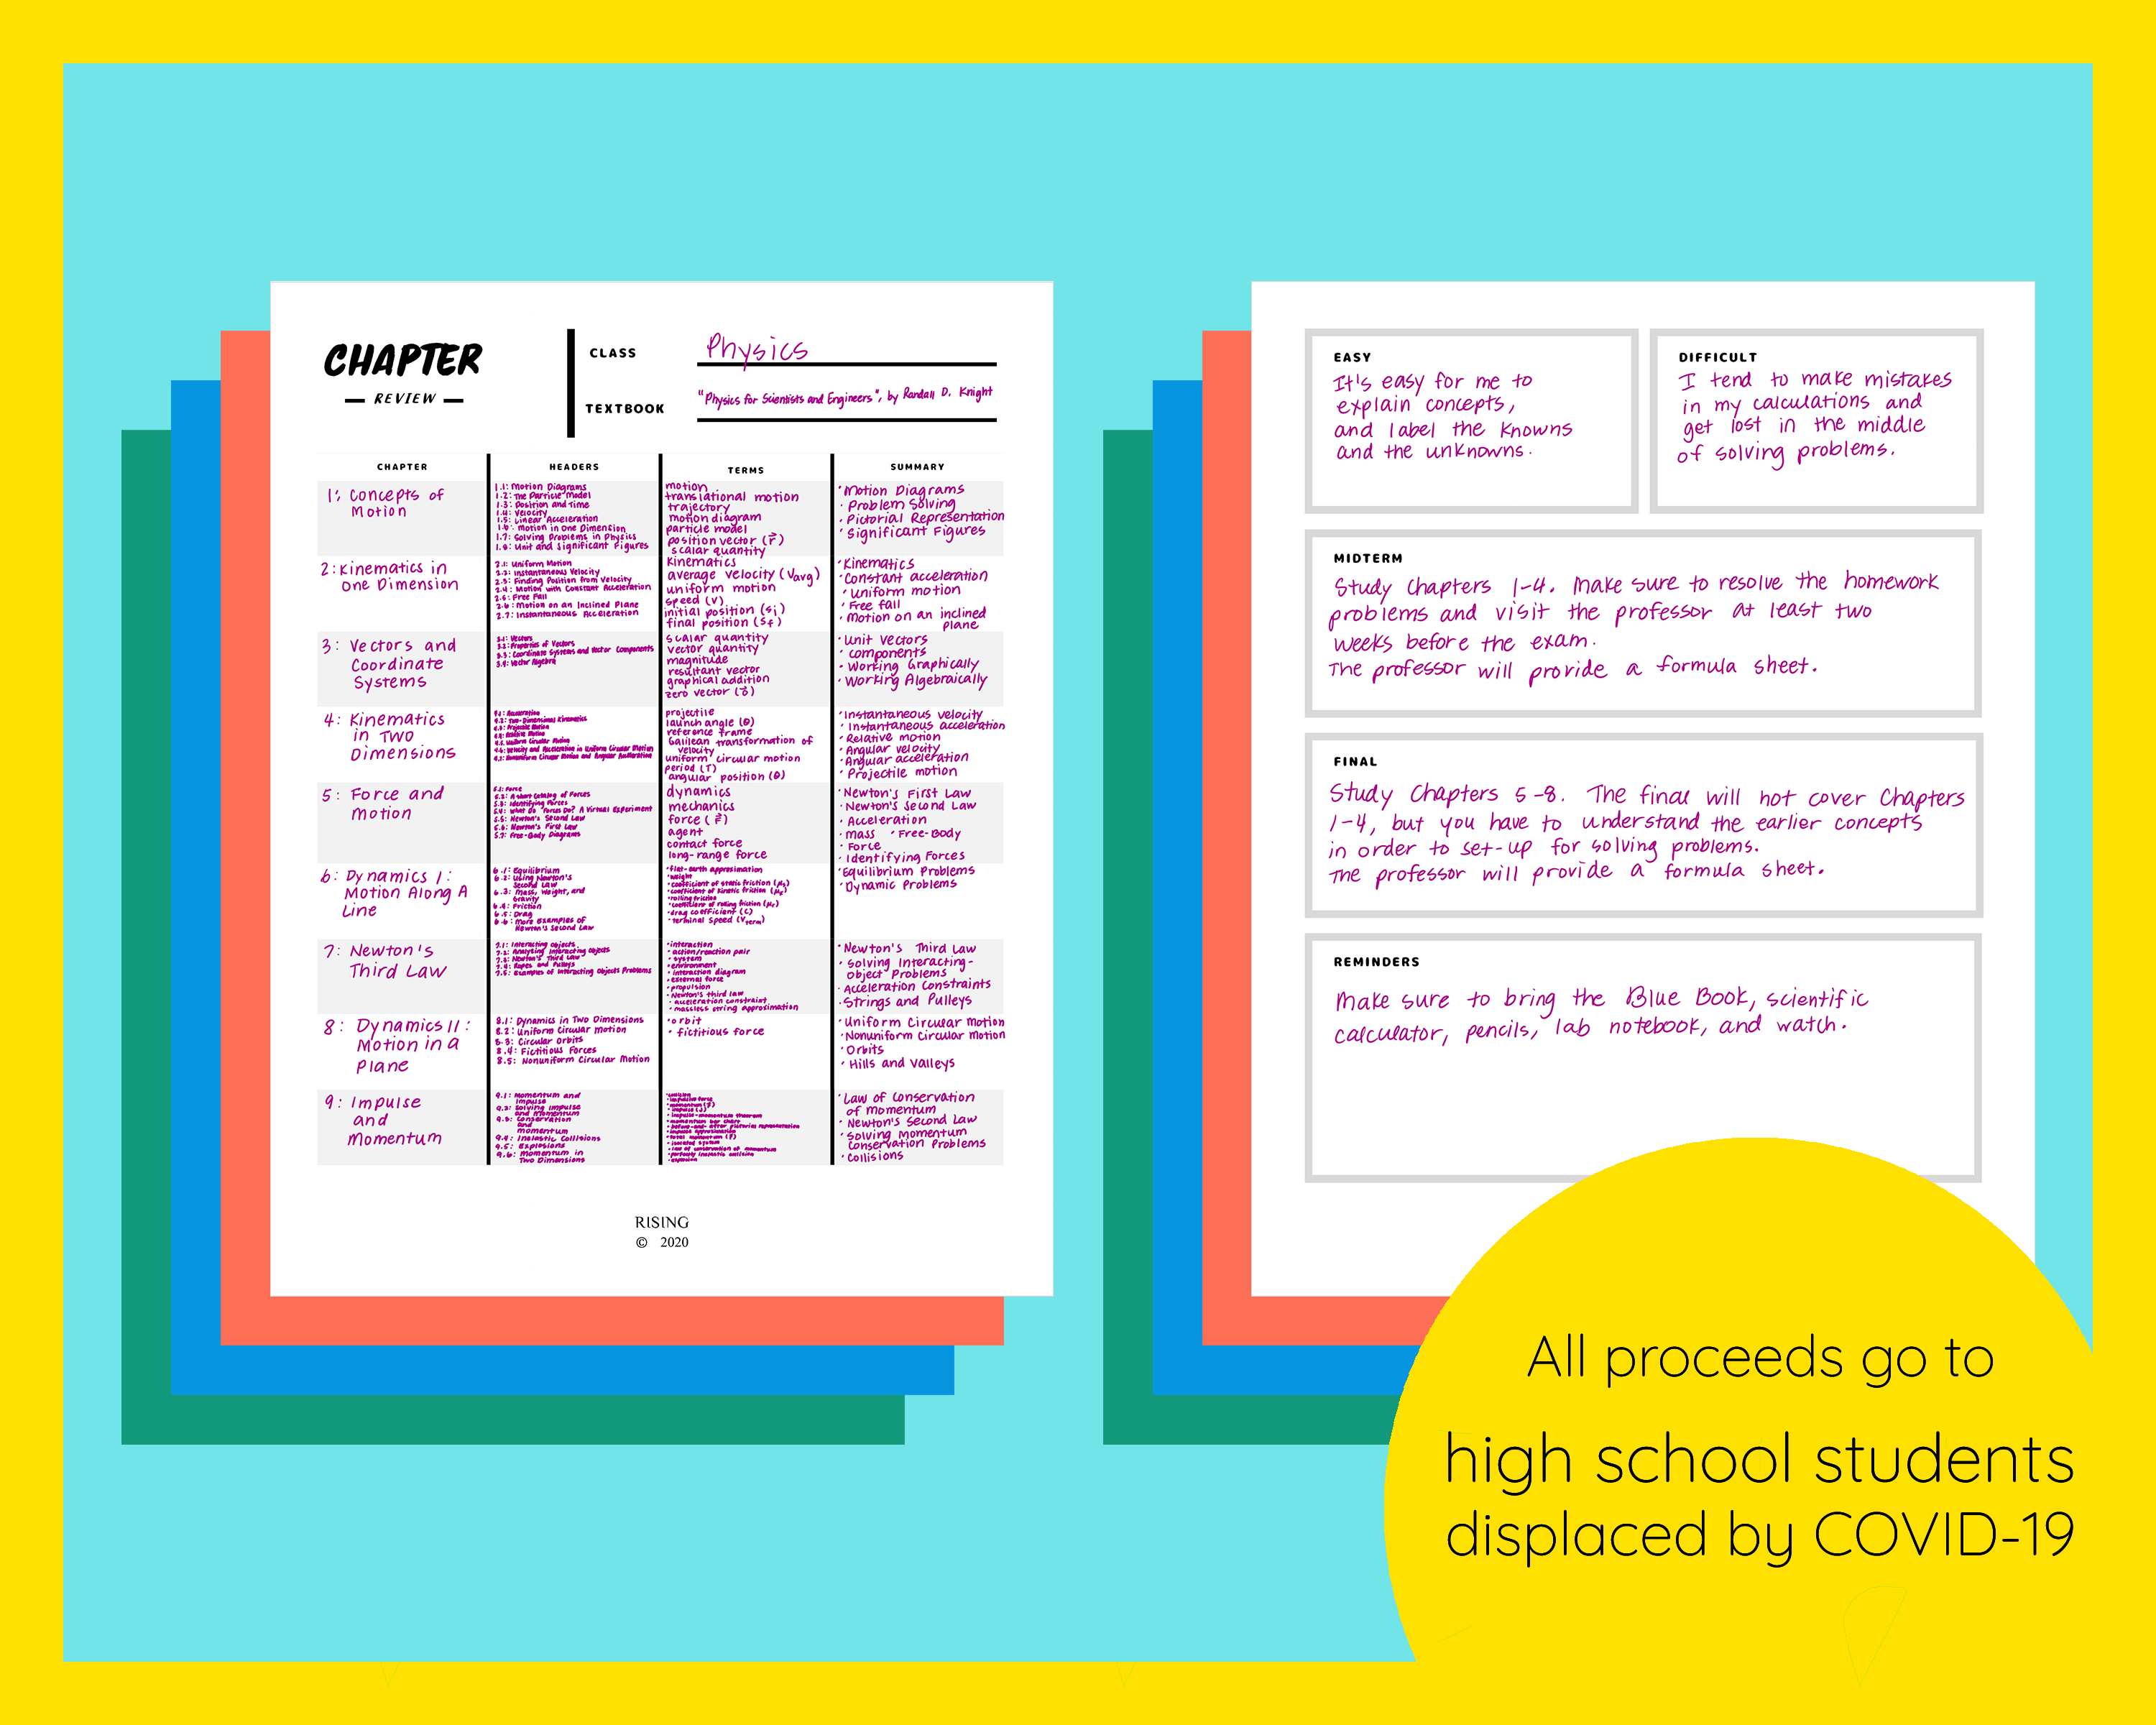 CHAPTER
REVIEW
CLASS
Physics
TEXTBOOK
"Physics for Scientists and Engineers", by Randall D. Knight
CHAPTER
HEADERS
TERMS
SUMMARY
1: Concepts of
Motion
1.1: Motion Diagrams
1.2: The Particle Model
1.3: Position and Time
1.4: Velocity
1.5: Linear Acceleration
1.6: Motion in One Dimension
1.7: Solving Problems in Physics
1.8: Unit and Significant Figures
motion
translational motion
trajectory
motion diagram
particle model
position vector (r⃗)
scalar quantity
· Motion Diagrams
· Problem Solving
· Pictorial Representation
· Significant Figures
2: Kinematics in
One Dimension
2.1: Uniform Motion
2.2: Instantaneous Velocity
2.3: Finding Position from Velocity
2.4: Motion with Constant Acceleration
2.5: Free Fall
2.6: Motion on an Inclined Plane
2.7: Instantaneous Acceleration
Kinematics
average velocity (Vavg)
uniform motion
speed (v)
initial position (si)
final position (sf)
· Kinematics
· Constant acceleration
· Uniform motion
· Free fall
· Motion on an inclined
plane
3: Vectors and
Coordinate
Systems
3.1: Vectors
3.2: Properties of Vectors
3.3: Coordinate Systems and Vector Components
3.4: Vector Algebra
scalar quantity
vector quantity
magnitude
resultant vector
graphical addition
zero vector (0⃗)
· Unit Vectors
· Components
· Working Graphically
· Working Algebraically
4: Kinematics
in Two
Dimensions
4.1: Acceleration
4.2: Two-Dimensional Kinematics
4.3: Projectile Motion
4.4: Relative Motion
4.5: Uniform Circular Motion
4.6: Velocity and Acceleration in Uniform Circular Motion
4.7: Nonuniform Circular Motion and Angular Acceleration
projectile
launch angle (θ)
reference frame
Galilean transformation of
velocity
uniform circular motion
period (T)
angular position (θ)
· Instantaneous velocity
· Instantaneous acceleration
· Relative motion
· Angular velocity
· Angular acceleration
· Projectile motion
5: Force and
Motion
5.1: Force
5.2: A Short Catalog of Forces
5.3: Identifying Forces
5.4: What Do Forces Do? A Virtual Experiment
5.5: Newton's Second Law
5.6: Newton's First Law
5.7: Free-Body Diagrams
dynamics
mechanics
force (F⃗)
agent
contact force
long-range force
· Newton's First Law
· Newton's Second Law
· Acceleration
· Mass · Free-Body
· Force
· Identifying Forces
6: Dynamics I:
Motion Along A
Line
6.1: Equilibrium
6.2: Using Newton's
Second Law
6.3: Mass, Weight, and
Gravity
6.4: Friction
6.5: Drag
6.6: More Examples of
Newton's Second Law
· flat-earth approximation
· weight
· coefficient of static friction (μs)
· coefficient of kinetic friction (μk)
· rolling friction
· coefficient of rolling friction (μr)
· drag coefficient (C)
· terminal speed (Vterm)
· Equilibrium Problems
· Dynamic Problems
7: Newton's
Third Law
7.1: Interacting Objects
7.2: Analyzing Interacting Objects
7.3: Newton's Third Law
7.4: Ropes and Pulleys
7.5: Examples of Interacting Objects Problems
· interaction
· action/reaction pair
· system
· environment
· interaction diagram
· external force
· propulsion
· Newton's third law
· acceleration constraint
· massless string approximation
· Newton's Third Law
· Solving Interacting-
object Problems
· Acceleration Constraints
· Strings and Pulleys
8: Dynamics II:
Motion in a
Plane
8.1: Dynamics in Two Dimensions
8.2: Uniform Circular Motion
8.3: Circular Orbits
8.4: Fictitious Forces
8.5: Nonuniform Circular Motion
· orbit
· fictitious force
· Uniform Circular Motion
· Nonuniform Circular Motion
· Orbits
· Hills and Valleys
9: Impulse
and
Momentum
9.1: Momentum and
Impulse
9.2: Solving Impulse
and Momentum
9.3: Conservation
and
momentum
9.4: Inelastic Collisions
9.5: Explosions
9.6: Momentum in
Two Dimensions
· collision
· impulsive force
· momentum (p⃗)
· impulse (J)
· impulse-momentum theorem
· momentum bar chart
· before-and-after pictorial representation
· impulse approximation
· total momentum (P⃗)
· isolated system
· law of conservation of momentum
· perfectly inelastic collision
· explosion
· Law of Conservation
of momentum
· Newton's Second Law
· Solving Momentum
Conservation Problems
· Collisions
RISING
© 2020
EASY
It's easy for me to
explain concepts,
and label the knowns
and the unknowns.
DIFFICULT
I tend to make mistakes
in my calculations and
get lost in the middle
of solving problems.
MIDTERM
Study Chapters 1-4. Make sure to resolve the homework
problems and visit the professor at least two
weeks before the exam.
The professor will provide a formula sheet.
FINAL
Study Chapters 5-8. The final will not cover Chapters
1-4, but you have to understand the earlier concepts
in order to set-up for solving problems.
The professor will provide a formula sheet.
REMINDERS
Make sure to bring the Blue Book, scientific
calculator, pencils, lab notebook, and watch.
All proceeds go to
high school students
displaced by COVID-19